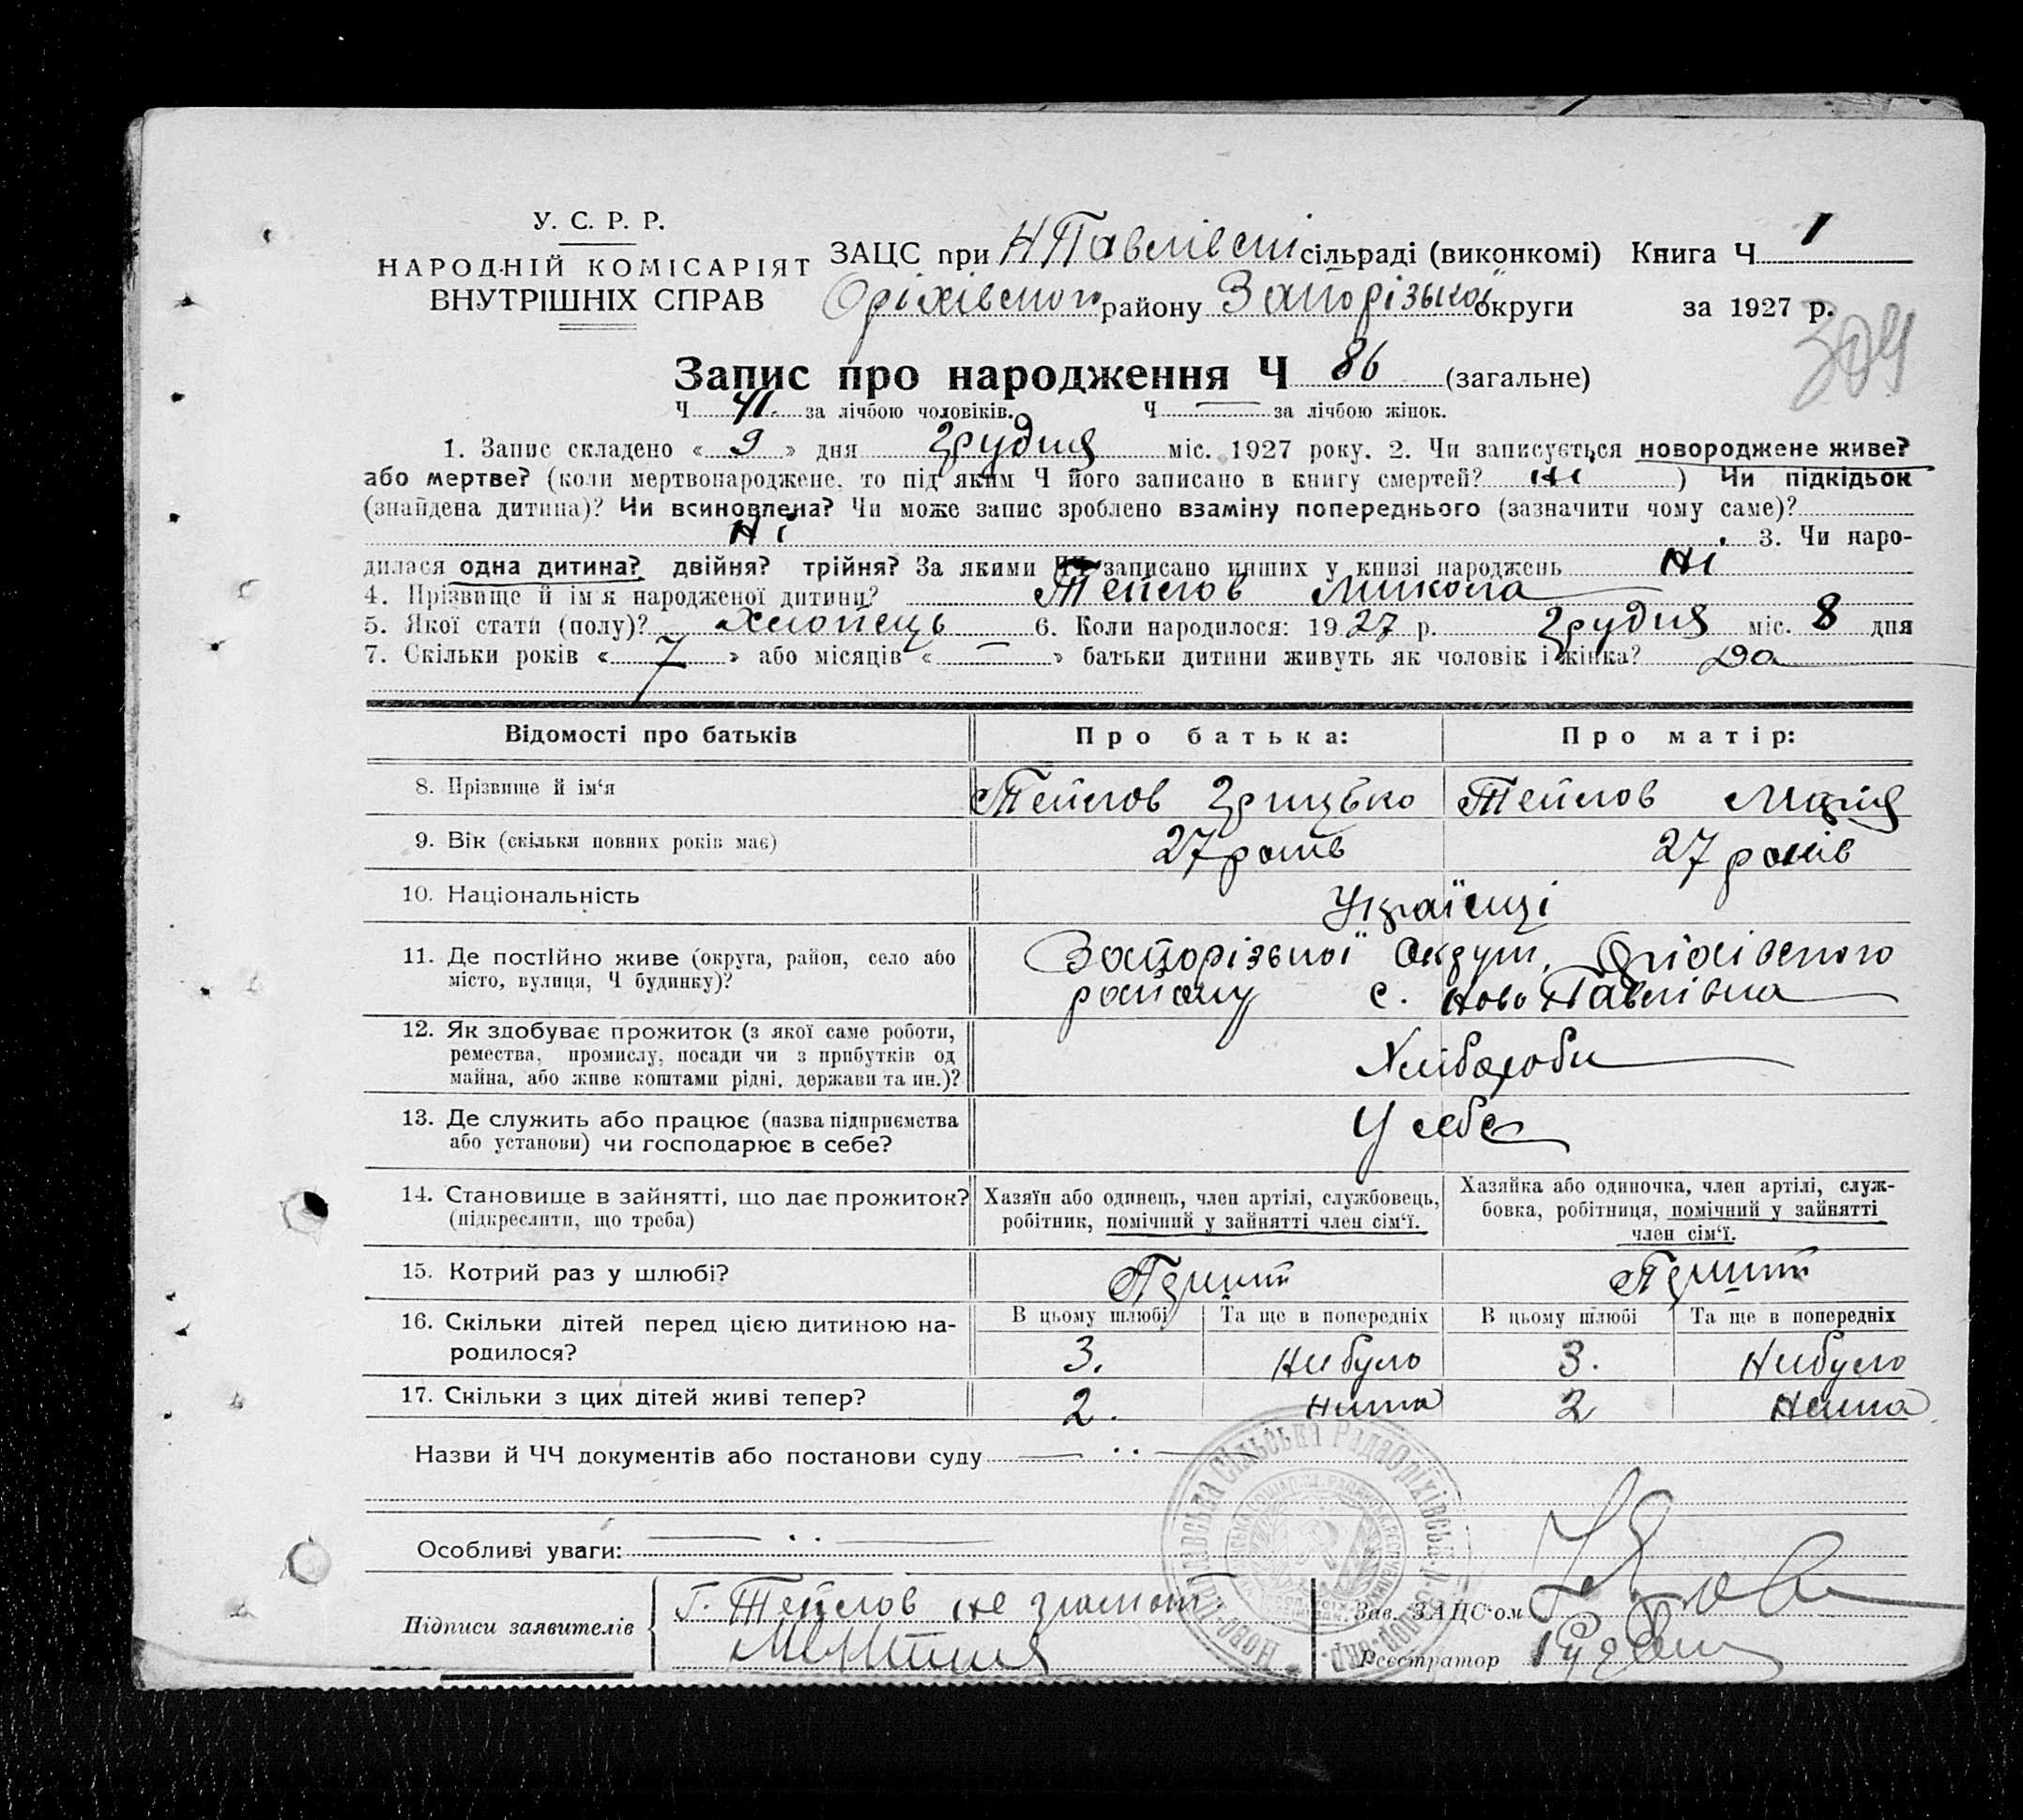 У. С. Р. Р.
НАРОДНІЙ КОМІСАРІЯТ
ВНУТРІШНІХ СПРАВ
ЗАЦС при Н Павлівські сільраді (виконкомі) Книга Ч 1
Оріхівського району Запорізької округи за 1927 р.
304
Запис про народження Ч 86 (загальне)
Ч 41. за лічбою чоловіків. Ч — за лічбою жінок.
1. Запис складено « 9 » дня грудня міс. 1927 року. 2. Чи записується новороджене живе?
або мертве? (коли мертвонароджене, то під яким Ч його записано в книгу смертей? Ні ) Чи підкідьок
(знайдена дитина)? Чи всиновлена? Чи може запис зроблено взаміну попереднього (зазначити чому саме)?
Ні 3. Чи наро-
дилася одна дитина? двійня? трійня? За якими ЧЧ записано инших у книзі народжень Ні
4. Прізвище й ім'я народженої дитини? Теплов Микола
5. Якої стати (полу)? Хлопець 6. Коли народилося: 19 27 р. грудня міс. 8 дня
7. Скільки років « 7 » або місяців « — » батьки дитини живуть як чоловік і жінка? Да
Відомості про батьків Про батька: Про матір:
8. Прізвище й ім'я Теплов Грицько Теплов Марія
9. Вік (скільки повних років має) 27 років 27 років
10. Національність Українці
11. Де постійно живе (округа, район, село або Запорізької Округи, Оріхівського
місто, вулиця, Ч будинку)? району с. Ново Павлівка
12. Як здобуває прожиток (з якої саме роботи,
ремества, промислу, посади чи з прибутків од Хліборобы
майна, або живе коштами рідні, держави та ин.)?
13. Де служить або працює (назва підприємства У себе
або установи) чи господарює в себе?
14. Становище в зайнятті, що дає прожиток? Хазяїн або одинець, член артілі, службовець, Хазяйка або одиночка, член артілі, служ-
(підкреслити, що треба) робітник, помічний у зайнятті член сім'ї. бовка, робітниця, помічний у зайнятті
член сім'ї.
15. Котрий раз у шлюбі?
16. Скільки дітей перед цією дитиною на- В цьому шлюбі Та ще в попередніх В цьому шлюбі Та ще в попередніх
родилося? 3. Небуло 3. Небуло
17. Скільки з цих дітей живі тепер? 2. Нима 2 Нема
Назви й ЧЧ документів або постанови суду
Особливі уваги:
Підписи заявителів Г. Теплов не грамот
Зав. ЗАЦС'ом
Реєстратор
Ново-Павлівська Сільська Рада Оріхівськ.